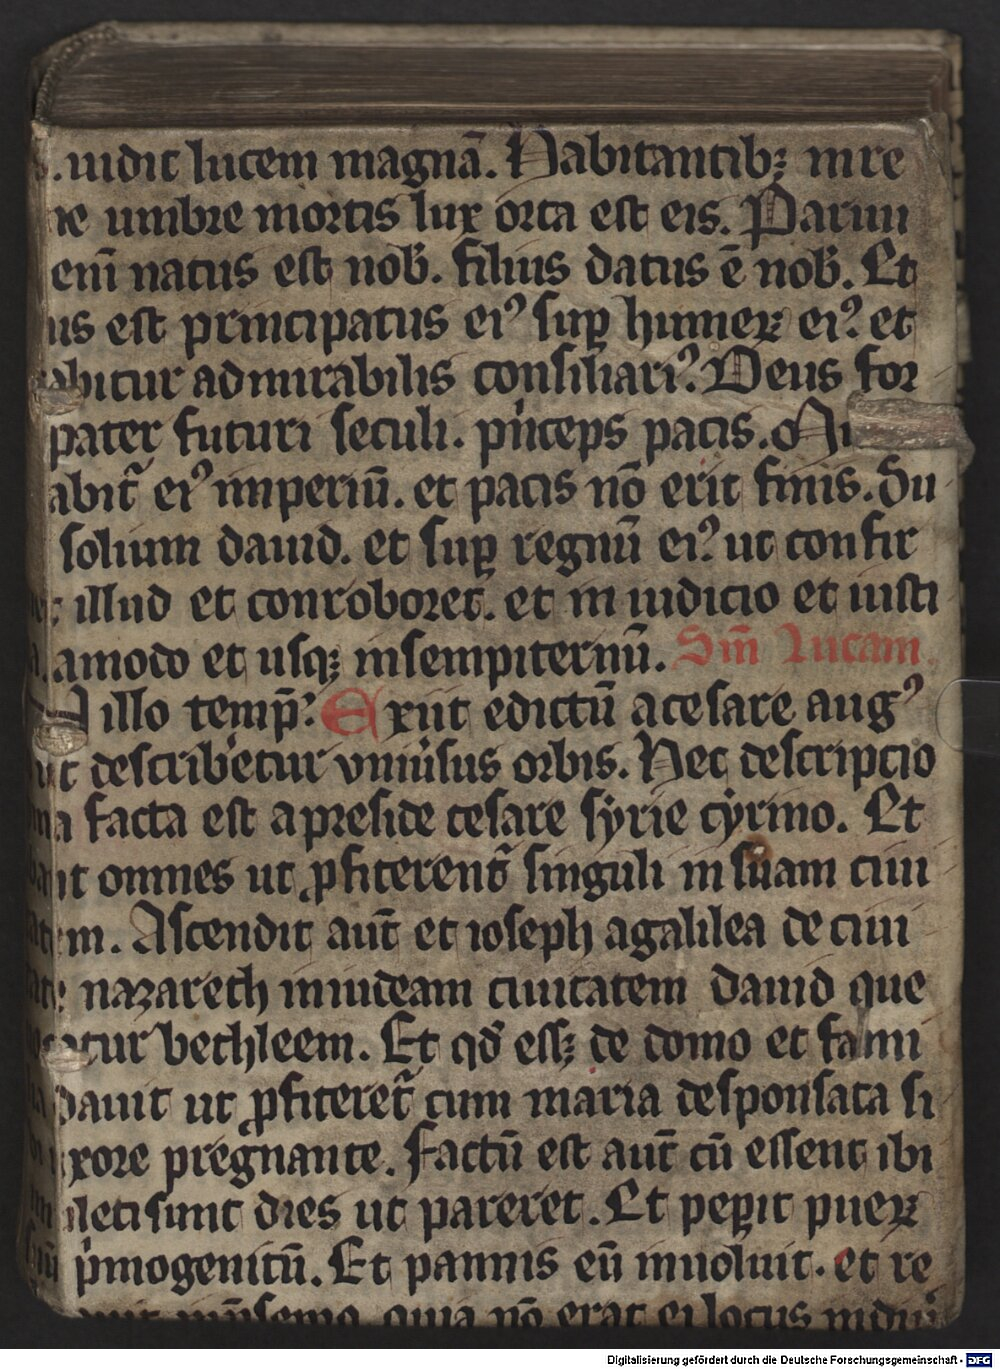 uidit lucem magnā. Habitantibꝫ in re
ne umbre mortis lux orta est eis. Paruu
enī natus est nob̄. filius datus ē nob̄. Et
us est principatus eiꝰ suꝑ humeꝝ eiꝰ. et
abitur admirabilis consiliariꝰ. Deus for
pater futuri seculi. p̍nceps pacis.
abit̄ eiꝰ imperiū. et pacis nō erit finis. Su
solium dauid. et suꝑ regnū eiꝰ. ut confir
illud et conroboret. et in iudicio et iusti
a. amodo et usqꝫ insempiternū. Sm̄ Lucam
illo temp̄. Exiit edictū acesare augꝰ
ut describ̍etur vniu̍sus orbis. Hec descripcio
ma facta est apreside cesare syrie cyrino. Et
bant omnes ut ꝓfiterent̄ singuli in suam ciui
tatem. Ascendit aut̄ et ioseph agalilea de ciui
tate nazareth iniudeam ciuitatem dauid que
uocatur bethleem. Et qd̄ essꝫ de domo et fami
lia dauit ut ꝓfiteret̄ cum maria desponsata si
uxore pregnante. Factū est aut̄ cū essent ibi
impleti sunt dies ut pareret. Et peꝑit pueꝝ
suū p̍mogenitū. Et pannis eū inuoluit. et re
quia nō erat ei locus
Digitalisierung gefördert durch die Deutsche Forschungsgemeinschaft - DFG